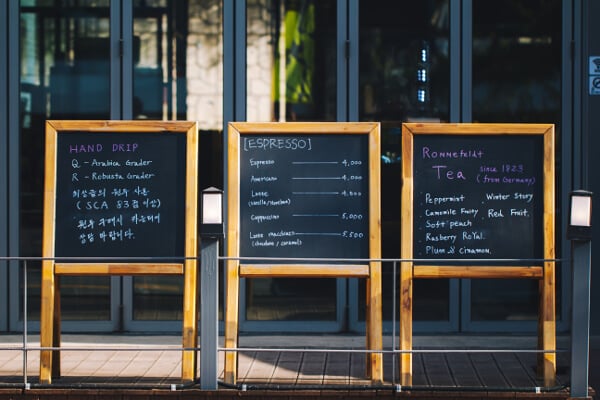 HAND DRIP
Q - Arabica Grader
R - Robusta Grader
최상급의 원두 사용
(SCA 83점 이상)
원두 구매시 카운터에
상담 바랍니다.
[ESPRESSO]
Espresso 4,000
Americano 4,000
Latte 4,500
(vanilla/hazelnut)
Cappuccino 5,000
Latte macchiato 5,500
(chocolate / caramel)
Ronnefeldt
Tea since 1823
(from Germany)
Peppermint Winter Story
Camomile Fruity Red Fruit
Soft peach
Rasberry Royal
Plum & Cinnamon